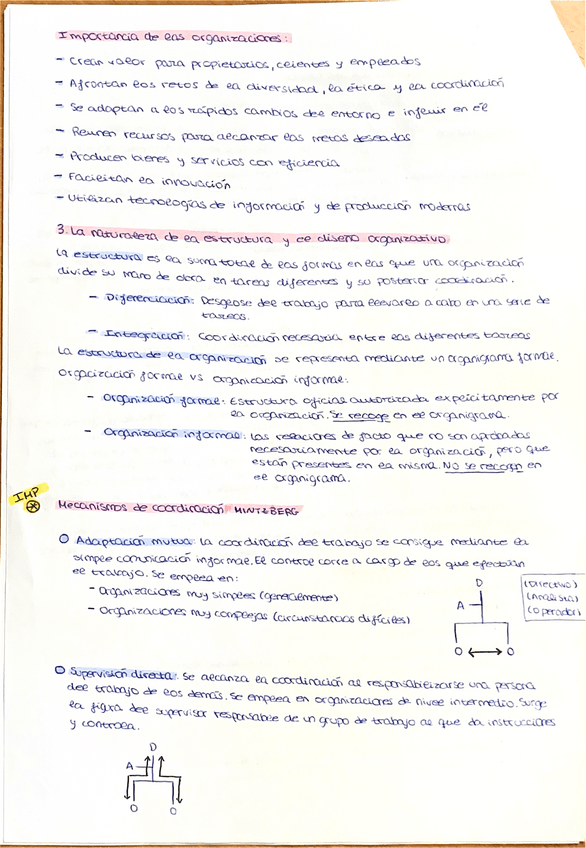 Importancia de las organizaciones:
- Crean valor para propietarios, clientes y empleados
- Afrontan los retos de la diversidad, la ética y la coordinación
- Se adaptan a los rápidos cambios del entorno e influir en él
- Reunen recursos para alcanzar las metas deseadas
- Producen bienes y servicios con eficiencia
- Facilitan la innovación
- Utilizan tecnologías de información y de producción modernas
3. La naturaleza de la estructura y el diseño organizativo
La estructura es la suma total de las formas en las que una organización
divide su mano de obra en tareas diferentes y su posterior coordinación.
- Diferenciación: Desglose del trabajo para llevarlo a cabo en una serie de
tareas.
- Integración: Coordinación necesaria entre las diferentes tareas
La estructura de la organización se representa mediante un organigrama formal.
Orgacización formal vs organización informal:
- Organización formal: Estructura oficial autorizada explícitamente por
la organización. Se recoge en el organigrama.
- Organización informal: Las relaciones de facto que no son aprobadas
necesariamente por la organización, pero que
están presentes en la misma. No se recogen en
el organigrama.
IMP
Mecanismos de coordinación MINTZBERG
Adaptación mutua: la coordinación del trabajo se consigue mediante la
simple comunicación informal. El control corre a cargo de los que efectúan
el trabajo. Se emplea en:
- Organizaciones muy simples (generalmente)
- Organizaciones muy complejas (circunstancias difíciles)
D (Directivo)
A (Analista)
(Operador)
O O
Supervisión directa: Se alcanza la coordinación al responsabilizarse una persona
del trabajo de los demás. Se emplea en organizaciones de nivel intermedio. Surge
la figura del supervisor responsable de un grupo de trabajo al que da instrucciones
y controla.
D
A
O O